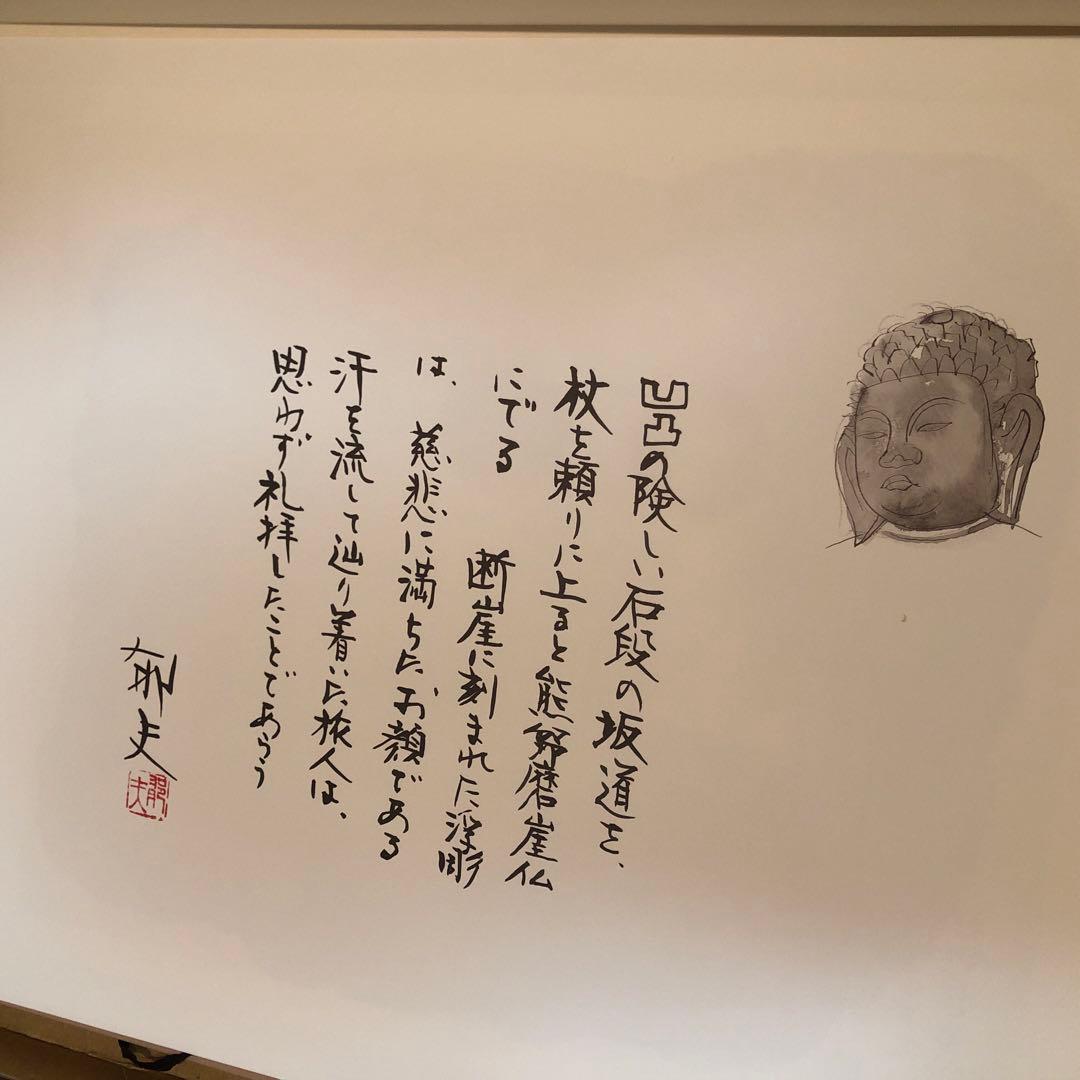 凹凸の険しい石段の坂道を、
杖を頼りに上ると熊野磨崖仏
にでる　断崖に刻まれた浮彫
は、慈悲に満ちたお顔である
汗を流して辿り着いた旅人は、
思わず礼拝したことであろう
郁夫
郁夫